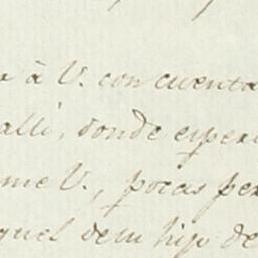 à V. con cuenta
alli, donde espera
me V., pocas per
quel dem hijo de